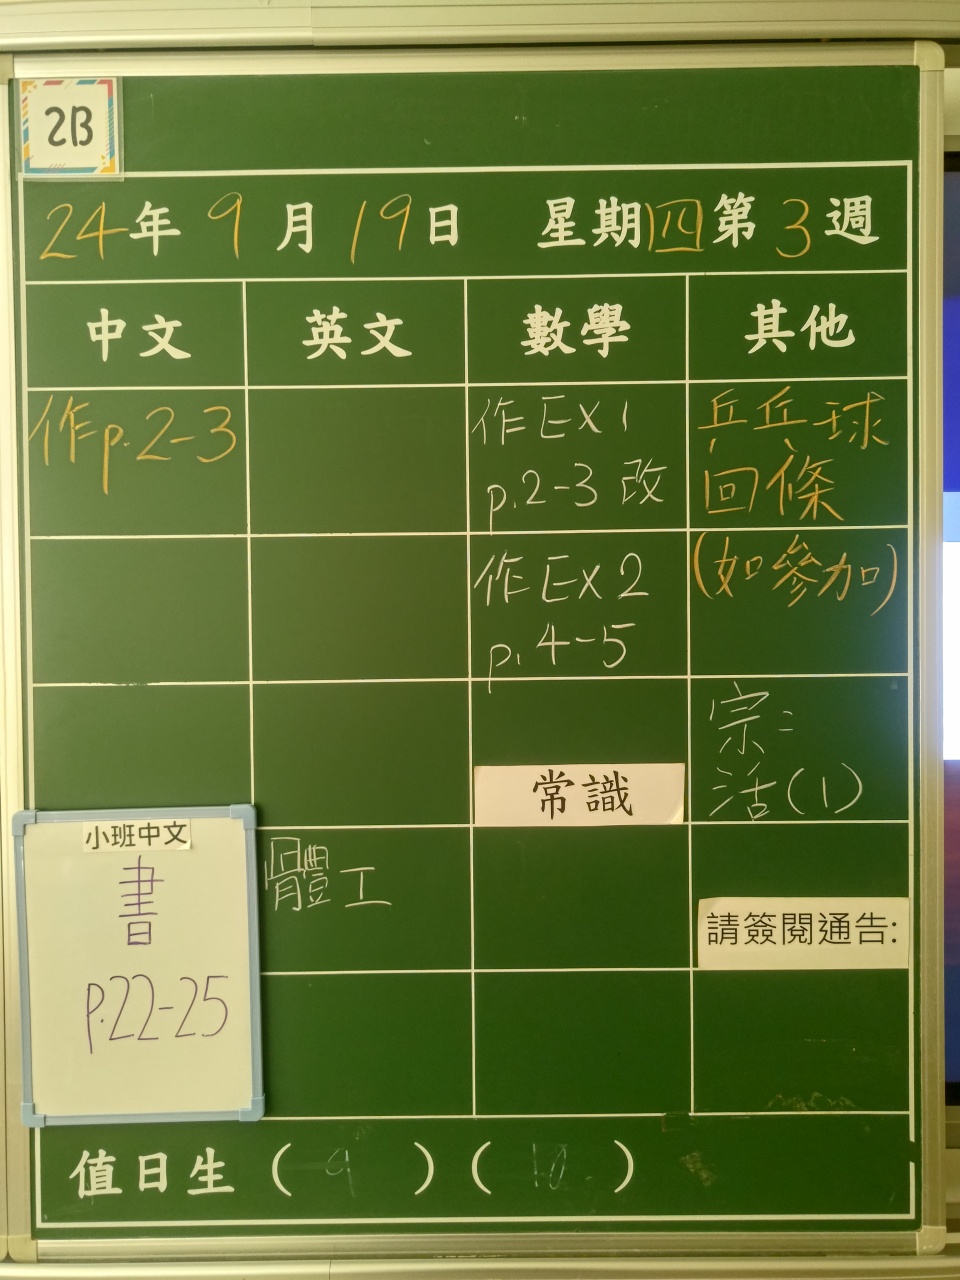 2B
24年9月19日 星期四第3週
中文 英文 數學 其他
作p.2-3
作Ex1
p.2-3 改
作Ex2
p.4-5
乒乓球
回條
(如參加)
常識
宗:
活(1)
小班中文
書
p.22-25
體工
請簽閱通告:
值日生 ( 9 ) ( 10 )